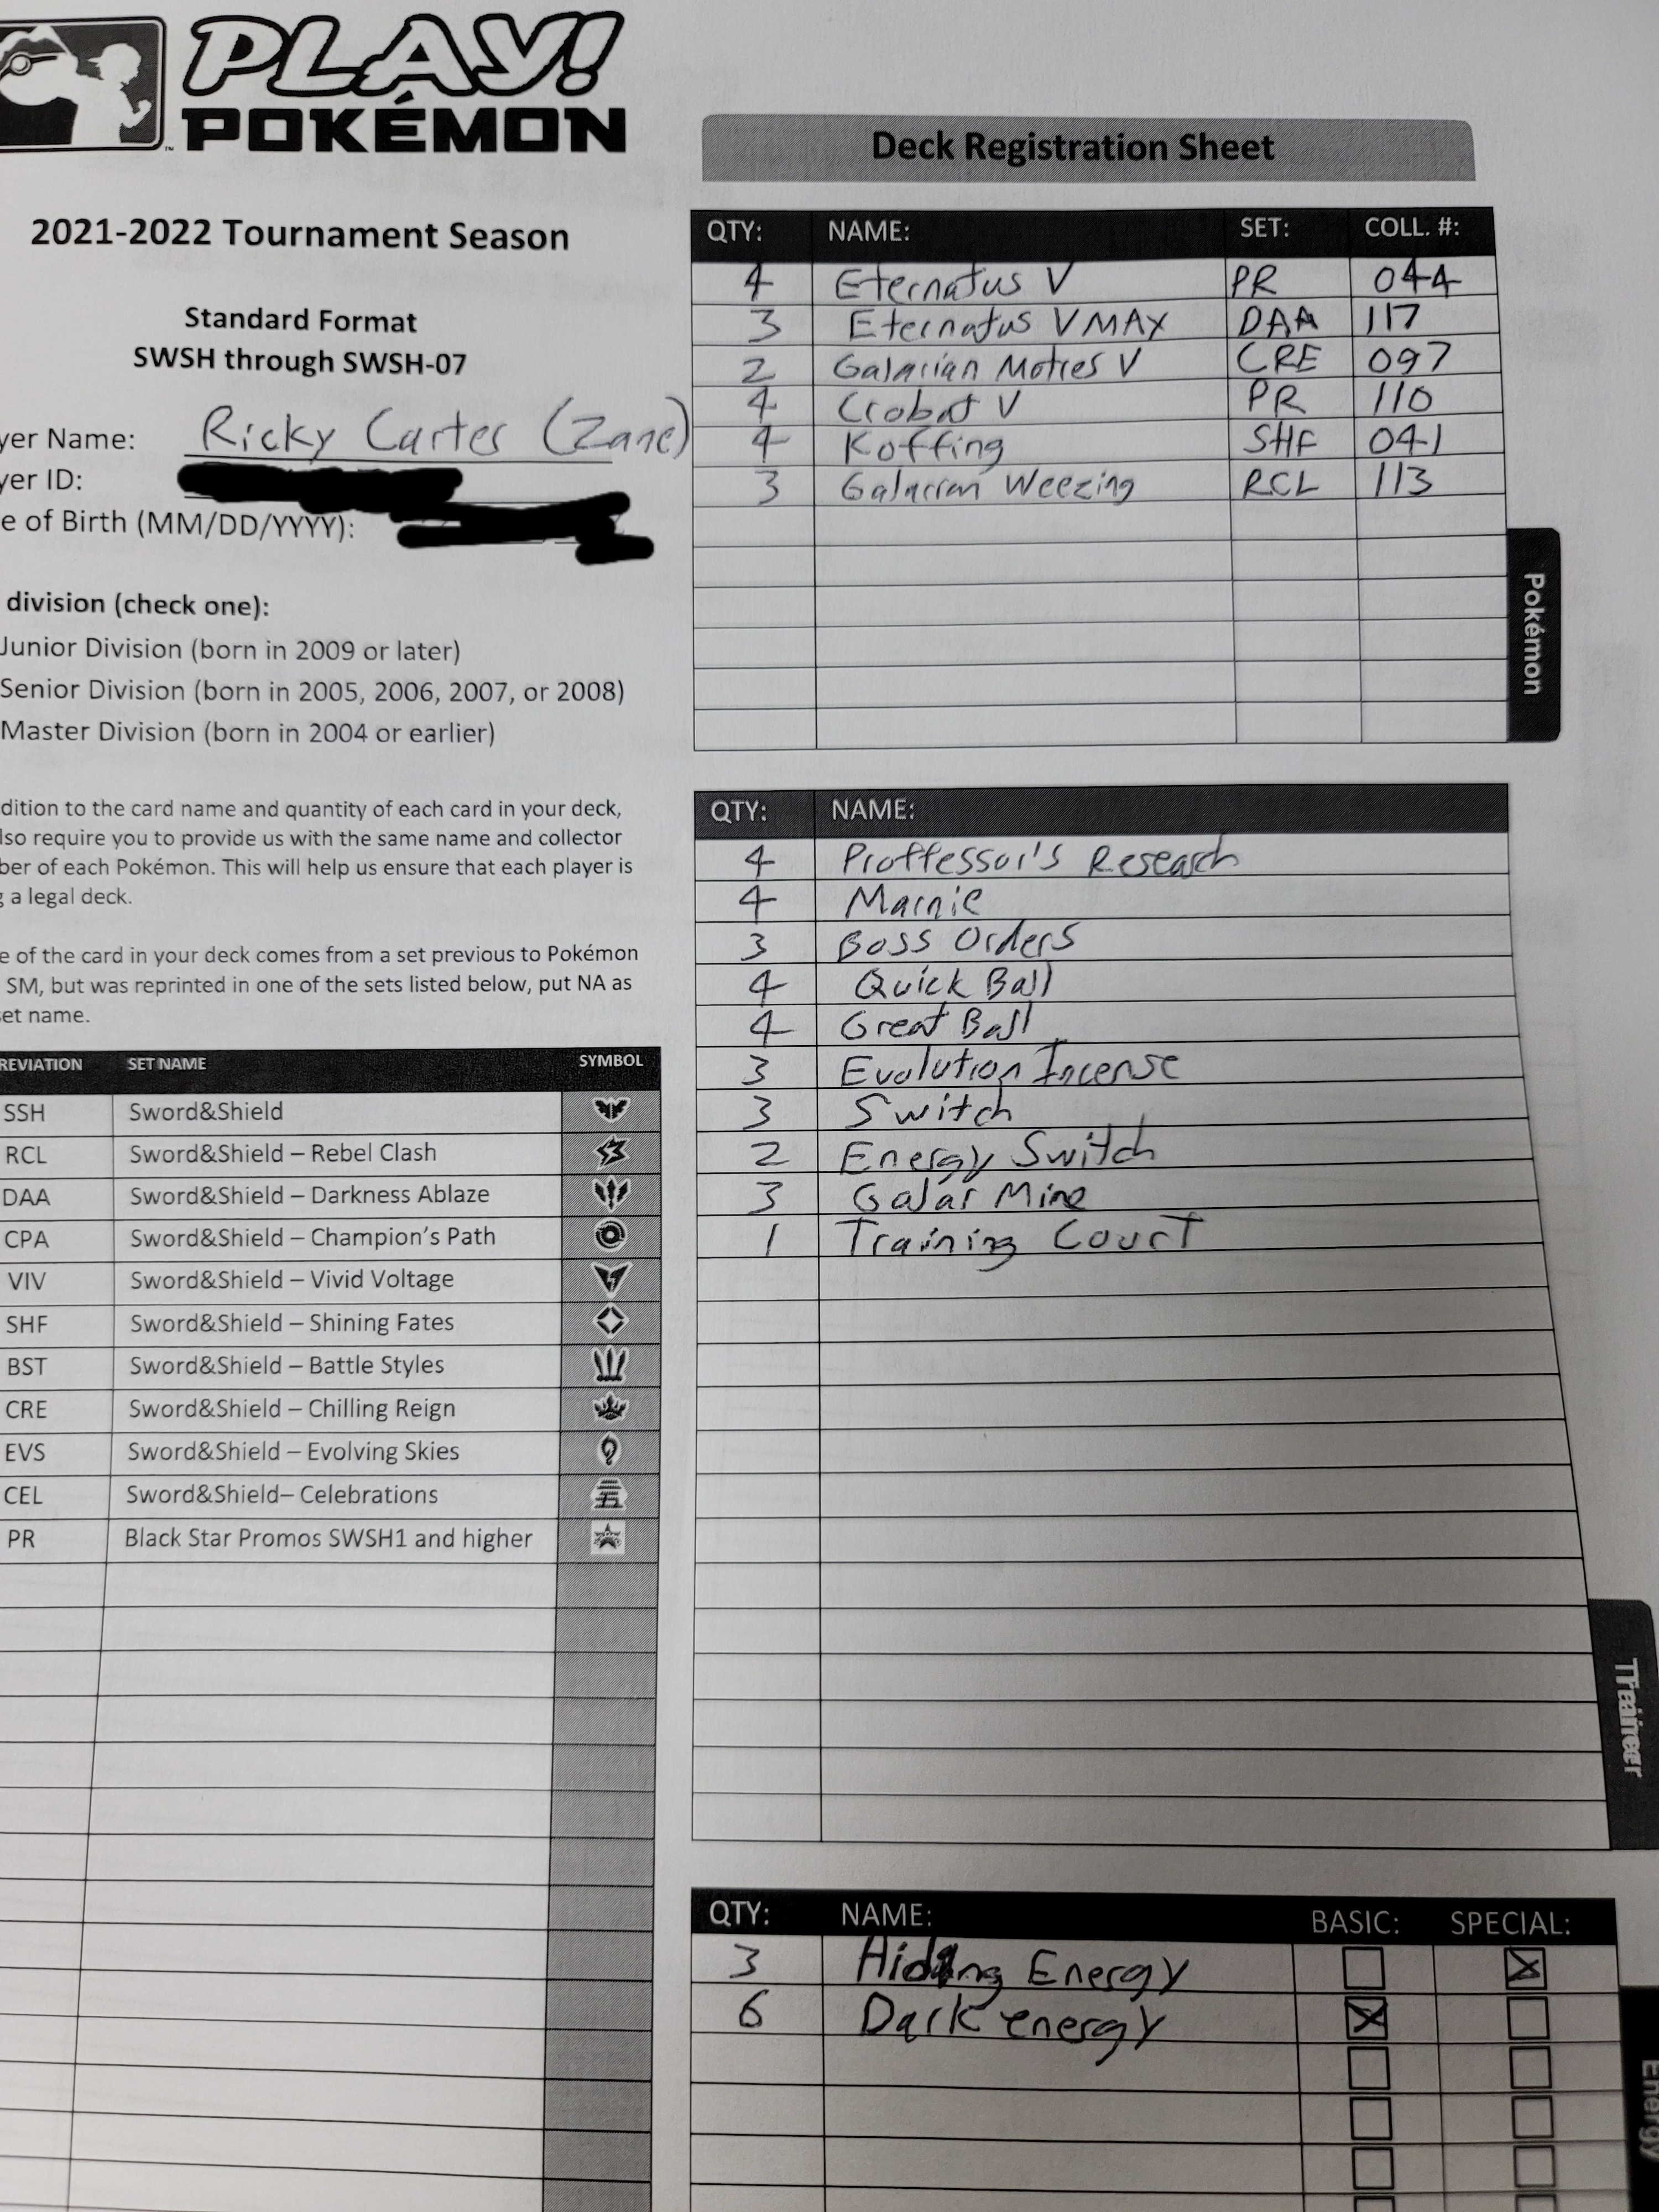 PLAY!
POKÉMON
™
2021-2022 Tournament Season
Standard Format
SWSH through SWSH-07
yer Name: Ricky Carter (Zane)
yer ID:
e of Birth (MM/DD/YYYY):
division (check one):
Junior Division (born in 2009 or later)
Senior Division (born in 2005, 2006, 2007, or 2008)
Master Division (born in 2004 or earlier)
dition to the card name and quantity of each card in your deck,
lso require you to provide us with the same name and collector
ber of each Pokémon. This will help us ensure that each player is
g a legal deck.
e of the card in your deck comes from a set previous to Pokémon
SM, but was reprinted in one of the sets listed below, put NA as
set name.
REVIATION SET NAME SYMBOL
SSH Sword&Shield
RCL Sword&Shield – Rebel Clash
DAA Sword&Shield – Darkness Ablaze
CPA Sword&Shield – Champion's Path
VIV Sword&Shield – Vivid Voltage
SHF Sword&Shield – Shining Fates
BST Sword&Shield – Battle Styles
CRE Sword&Shield – Chilling Reign
EVS Sword&Shield – Evolving Skies
CEL Sword&Shield– Celebrations
PR Black Star Promos SWSH1 and higher
Deck Registration Sheet
QTY: NAME: SET: COLL. #:
4 Eternatus V PR 044
3 Eternatus VMAX DAA 117
2 Galarian Motres V CRE 097
4 Crobat V PR 110
4 Koffing SHF 041
3 Galarian Weezing RCL 113
Pokémon
QTY: NAME:
4 Proffessor's Research
4 Marnie
3 Boss Orders
4 Quick Ball
4 Great Ball
3 Evolution Incense
3 Switch
2 Energy Switch
3 Galar Mine
1 Training Court
Trainer
QTY: NAME: BASIC: SPECIAL:
3 Hiding Energy
6 Dark energy
Energy